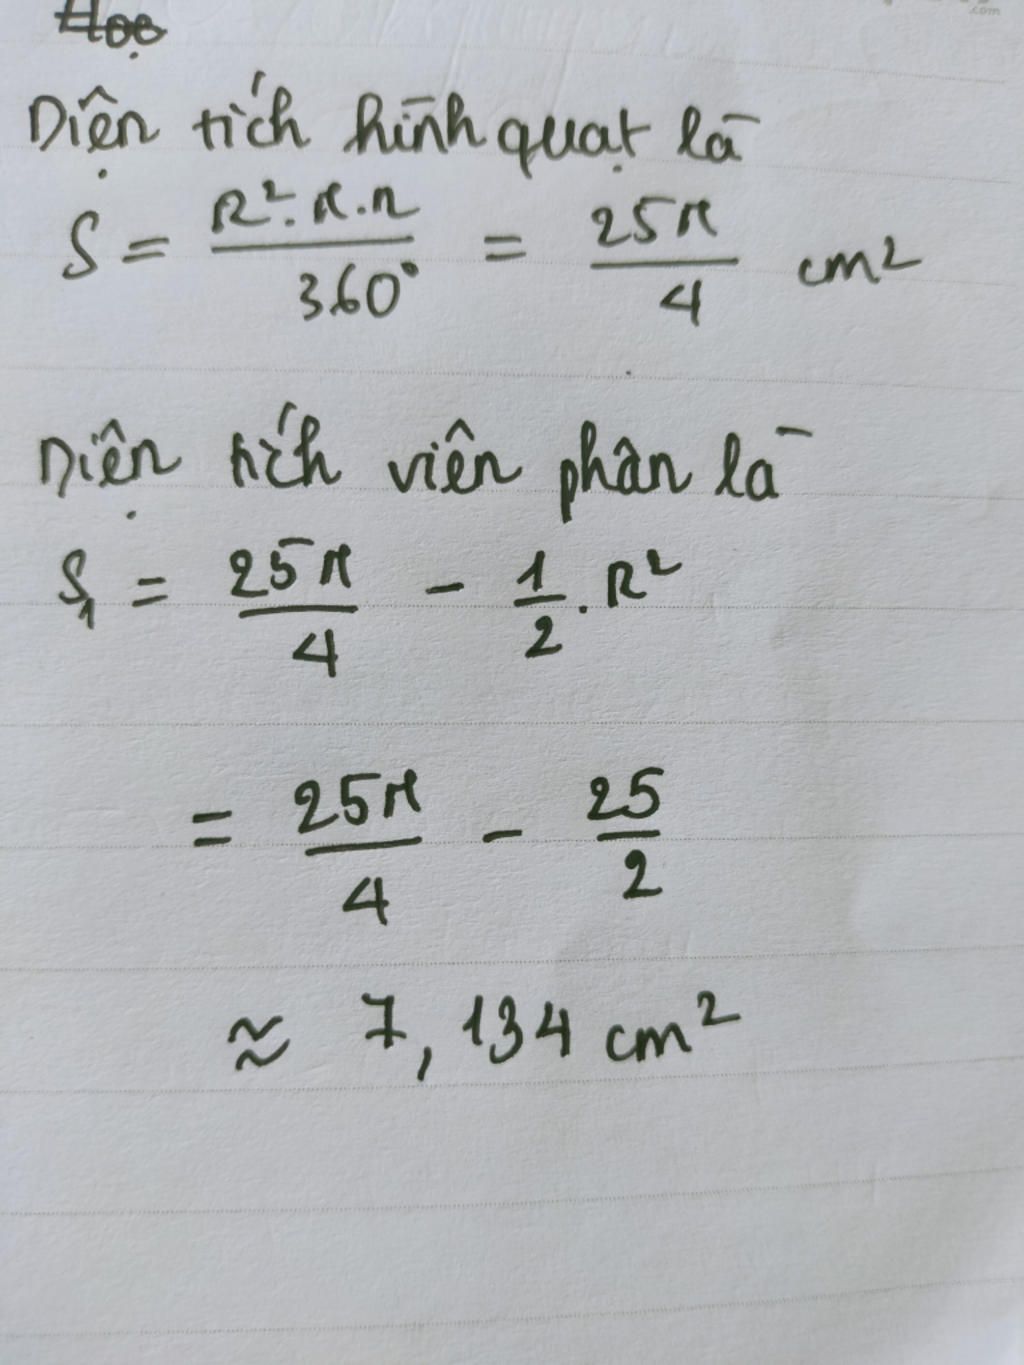 Diện tích hình quạt là
S = R².π.n / 360° = 25π / 4 cm²
Diện tích viên phân là
S₁ = 25π / 4 - 1 / 2 . R²
= 25π / 4 - 25 / 2
≈ 7,134 cm²